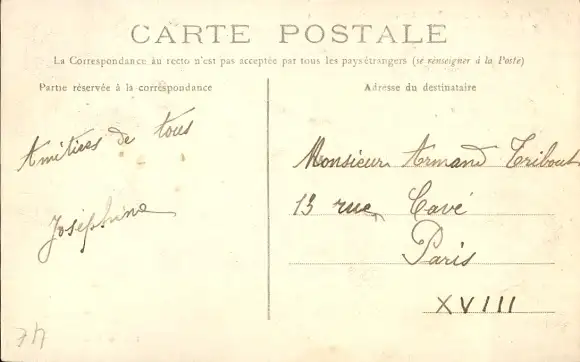 CARTE POSTALE
La Correspondance au recto n'est pas acceptée par tous les pays étrangers (se renseigner à la Poste)
Partie réservée à la correspondance
Adresse du destinataire
Amitiées de tous
Joséphine
Monsieur Armand Tribout
13 rue Cavé
Paris
XVIII